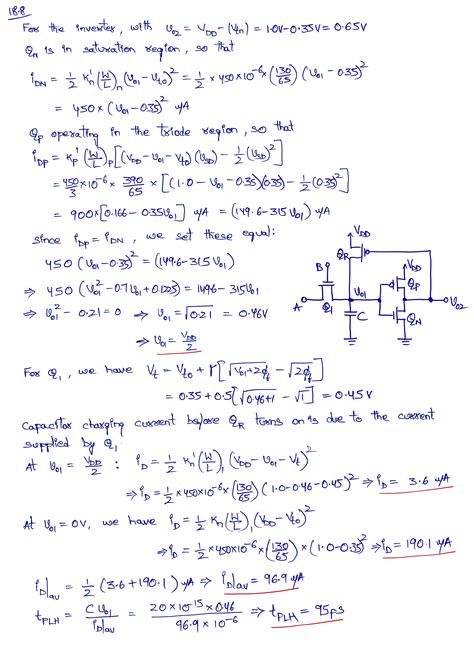 18.8
For the inverter, with υ₀₂ = V_DD - |V_tn| = 1.0V - 0.35V = 0.65V
Q_N is in saturation region, so that
i_DN = 1/2 k_n' (W/L)_n (υ₀₁ - V_t0)² = 1/2 × 450×10⁻⁶ × (130/65) (υ₀₁ - 0.35)²
= 450 × (υ₀₁ - 0.35)² μA
Q_P operating in the triode region, so that
i_DP = k_p' (W/L)_P [(V_DD - υ₀₁ - V_t0)(υ_SD) - 1/2 (υ_SD²)]
= 450/3 × 10⁻⁶ × 390/65 × [(1.0 - υ₀₁ - 0.35)(0.35) - 1/2 (0.35)²]
= 900×[0.166 - 0.35υ₀₁] μA = (149.6 - 315 υ₀₁) μA
since i_DP = i_DN, we set these equal:
450 (υ₀₁ - 0.35)² = (149.6 - 315 υ₀₁)
⇒ 450 (υ₀₁² - 0.7υ₀₁ + 0.1225) = 149.6 - 315υ₀₁
⇒ υ₀₁² - 0.21 = 0 ⇒ υ₀₁ = √0.21 = 0.46V
⇒ υ₀₁ = V_DD/2
V_DD
Q_R
B
V_DD
Q_P
A
Q_1
υ₀₁
υ₀₂
C
Q_N
For Q_1, we have V_t = V_t0 + γ[√(υ₀₁+2φ_f) - √(2φ_f)]
= 0.35 + 0.5[√(0.46+1) - √1] = 0.45V
Capacitor charging current before Q_R turns on is due to the current
supplied by Q_1.
At υ₀₁ = V_DD/2 : i_D = 1/2 k_n' (W/L)_1 (V_DD - υ₀₁ - V_t)²
⇒ i_D = 1/2 × 450×10⁻⁶ × (130/65) (1.0 - 0.46 - 0.45)² ⇒ i_D = 3.6 μA
At υ₀₁ = 0V, we have i_D = 1/2 k_n (W/L)_1 (V_DD - V_t0)²
⇒ i_D = 1/2 × 450×10⁻⁶ × (130/65) × (1.0 - 0.35)² ⇒ i_D = 190.1 μA
i_D|av = 1/2 (3.6 + 190.1) μA ⇒ i_D|av = 96.9 μA
t_PLH = C υ₀₁ / i_D|av = 20×10⁻¹⁵ × 0.46 / 96.9×10⁻⁶ ⇒ t_PLH = 95ps